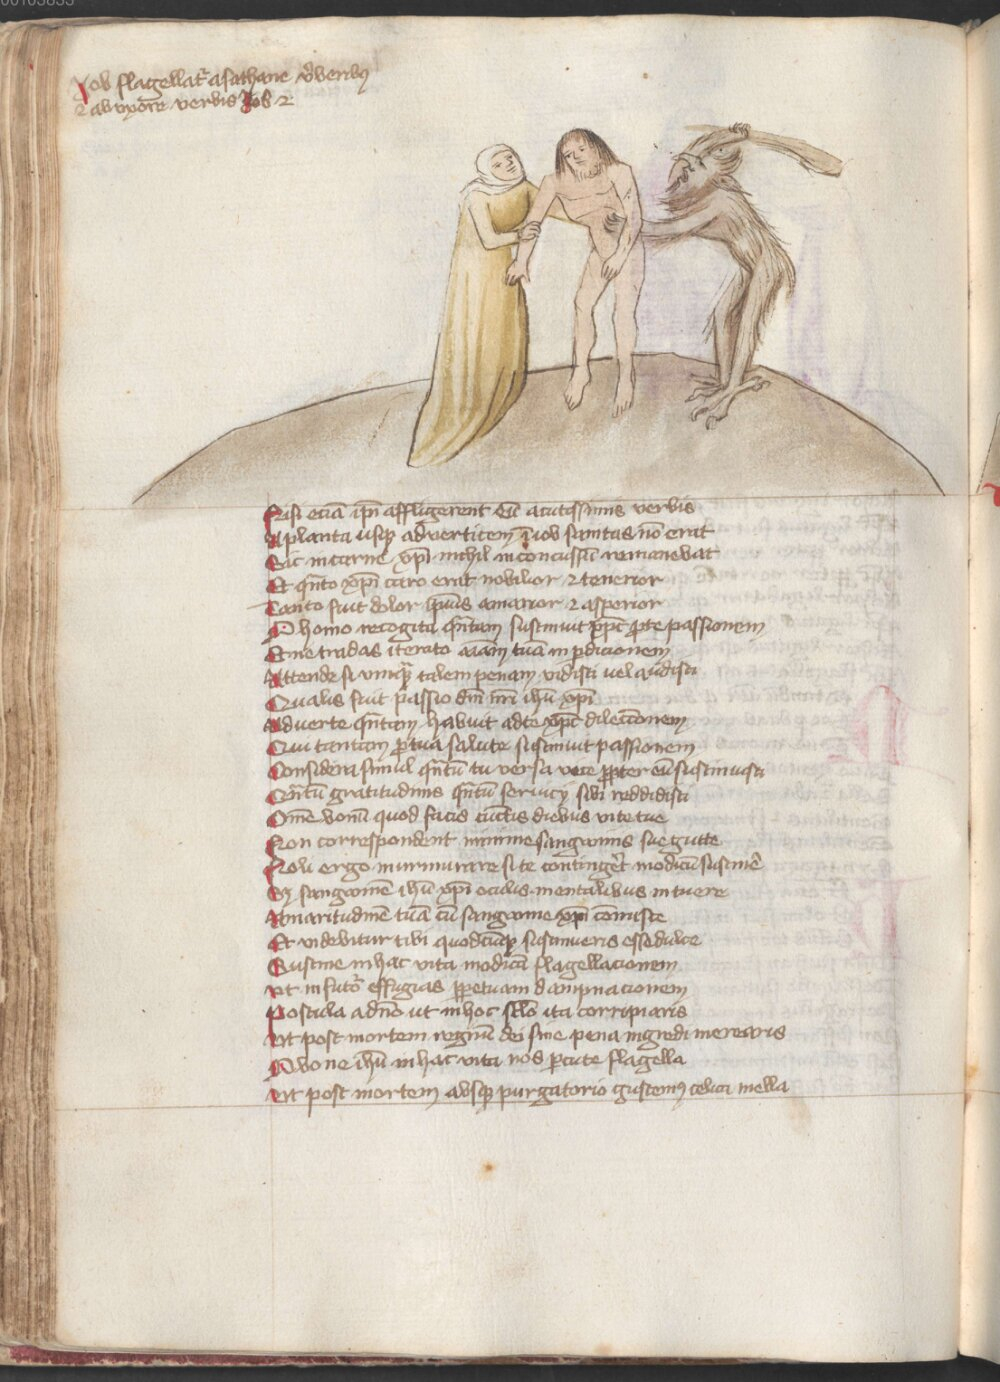 00103855
Job flagellat᷑ a sathane v̉beribꝯ
⁊ ab vxore verbis Job 2
Nisi eciā ip̄m affligerent cū acutissimis verbis
A planta usqꝫ ad verticem ī iob sanitas nō erat
Sic in carne xp̄i nichil inconcussū remanebat
Et q̄nto xp̄i caro erat nobilior ⁊ tenerior
Tanto fuit dolor ip̄ius amarior ⁊ asperior
O homo recogita q̄ntam sustinuit xp̄c p̱ te passionem
Et ne tradas iterato aīam tuā in p̱dicionem
Attende si vnqꝫ talem penam vidisti uel audisti
Qualis fuit passio dn̄i nr̄i ih̄u xp̄i
Adverte q̄ntam habuit ad te xp̄c dilectionem
Qui tantam p̱ tua salute sustinuit passionem
Considera simul q̄ntū tu versa vice p̱pter eū sustinuisti
q̄ntū gratitudinis q̄ntū seruicij sibi reddidisti
Om̄e bonū quod facis cūctis diebus vite tue
Non correspondent minime sangwinis sue gutte
Noli ergo murmurare si te contingēt modicū sustinē
Sꝫ sangwinē ih̄u xp̄i oculis mentalibus intuere
Amaritudinē tuā cū sangwine xp̄i cōmisce
Et videbitur tibi quodcūqꝫ sustinueris esse dulce
Sustine in hac vita modicā flagellacionem
vt in futo᷑ effugias p̱petuam dampnacionem
Postula a dn̄o ut in hoc sclō ita corripiaris
vt post mortem regnū dei sine pena ingredi merearis
O bone ih̄u in hac vita nos p̱cute flagella
vt post mortem absqꝫ purgatorio gustemꝯ celica mella